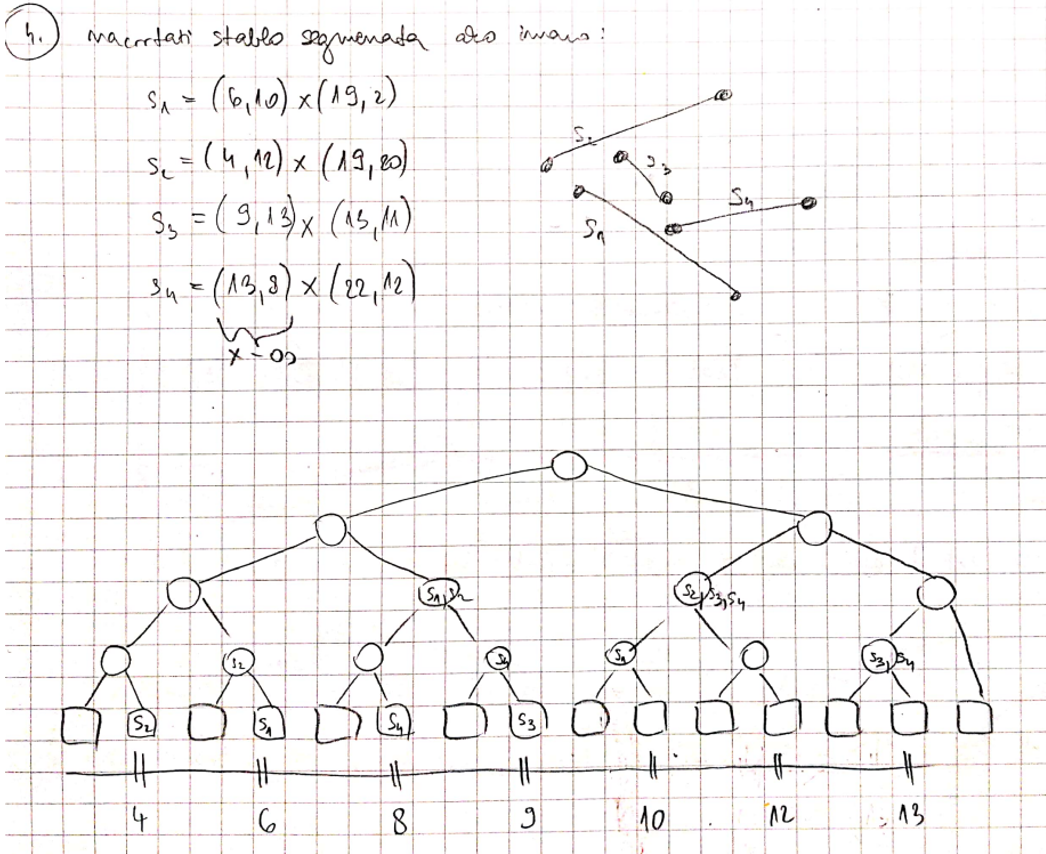 4. Nacrtati stablo segmenata ako imamo:
S₁ = (6,10) × (19,2)
S₂ = (4,12) × (19,20)
S₃ = (9,13) × (13,11)
S₄ = (13,8) × (22,12)
x-os
S₂
S₃
S₄
S₁
S₁,S₂ S₂,S₃,S₄
S₂ S₄ S₁ S₃,S₄
S₂ S₁ S₄ S₃
4 6 8 9 10 12 13